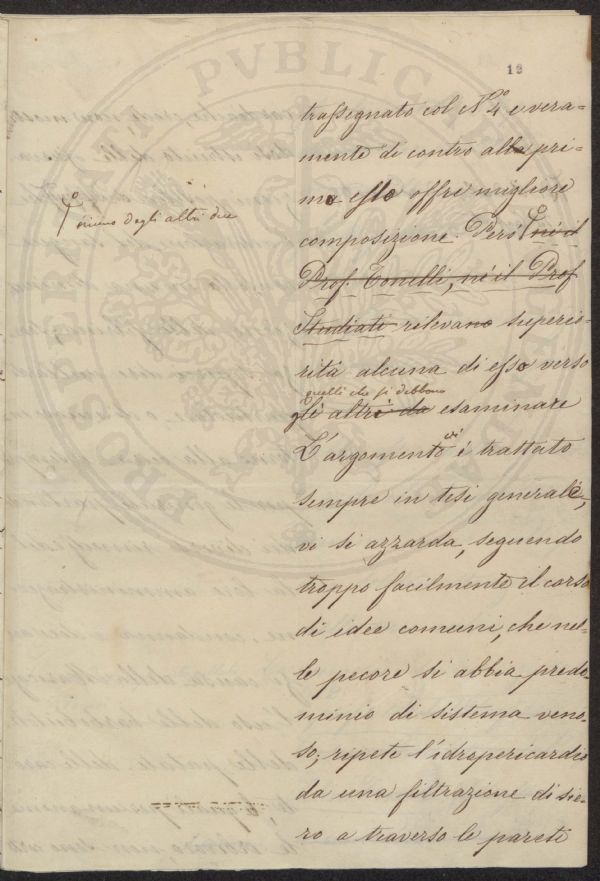 18
trassegnato col N.º 4 e vera-
mente di contro alla pri-
mo esso offre migliore
composizione. Però né il
Prof. Tonelli, né il Prof
Studiati rilevano superio-
rità alcuna di esso verso
quelli che si debbono
gli altri da esaminare
L'argomento vi è trattato
sempre in tesi generale,
vi si azzarda, seguendo
troppo facilmente il corso
di idee comuni, che nel-
le pecore si abbia predo-
minio di sistema veno-
so; ripete l'idropericardio
da una filtrazione di sie-
ro a traverso le pareti
niuno degli altri due